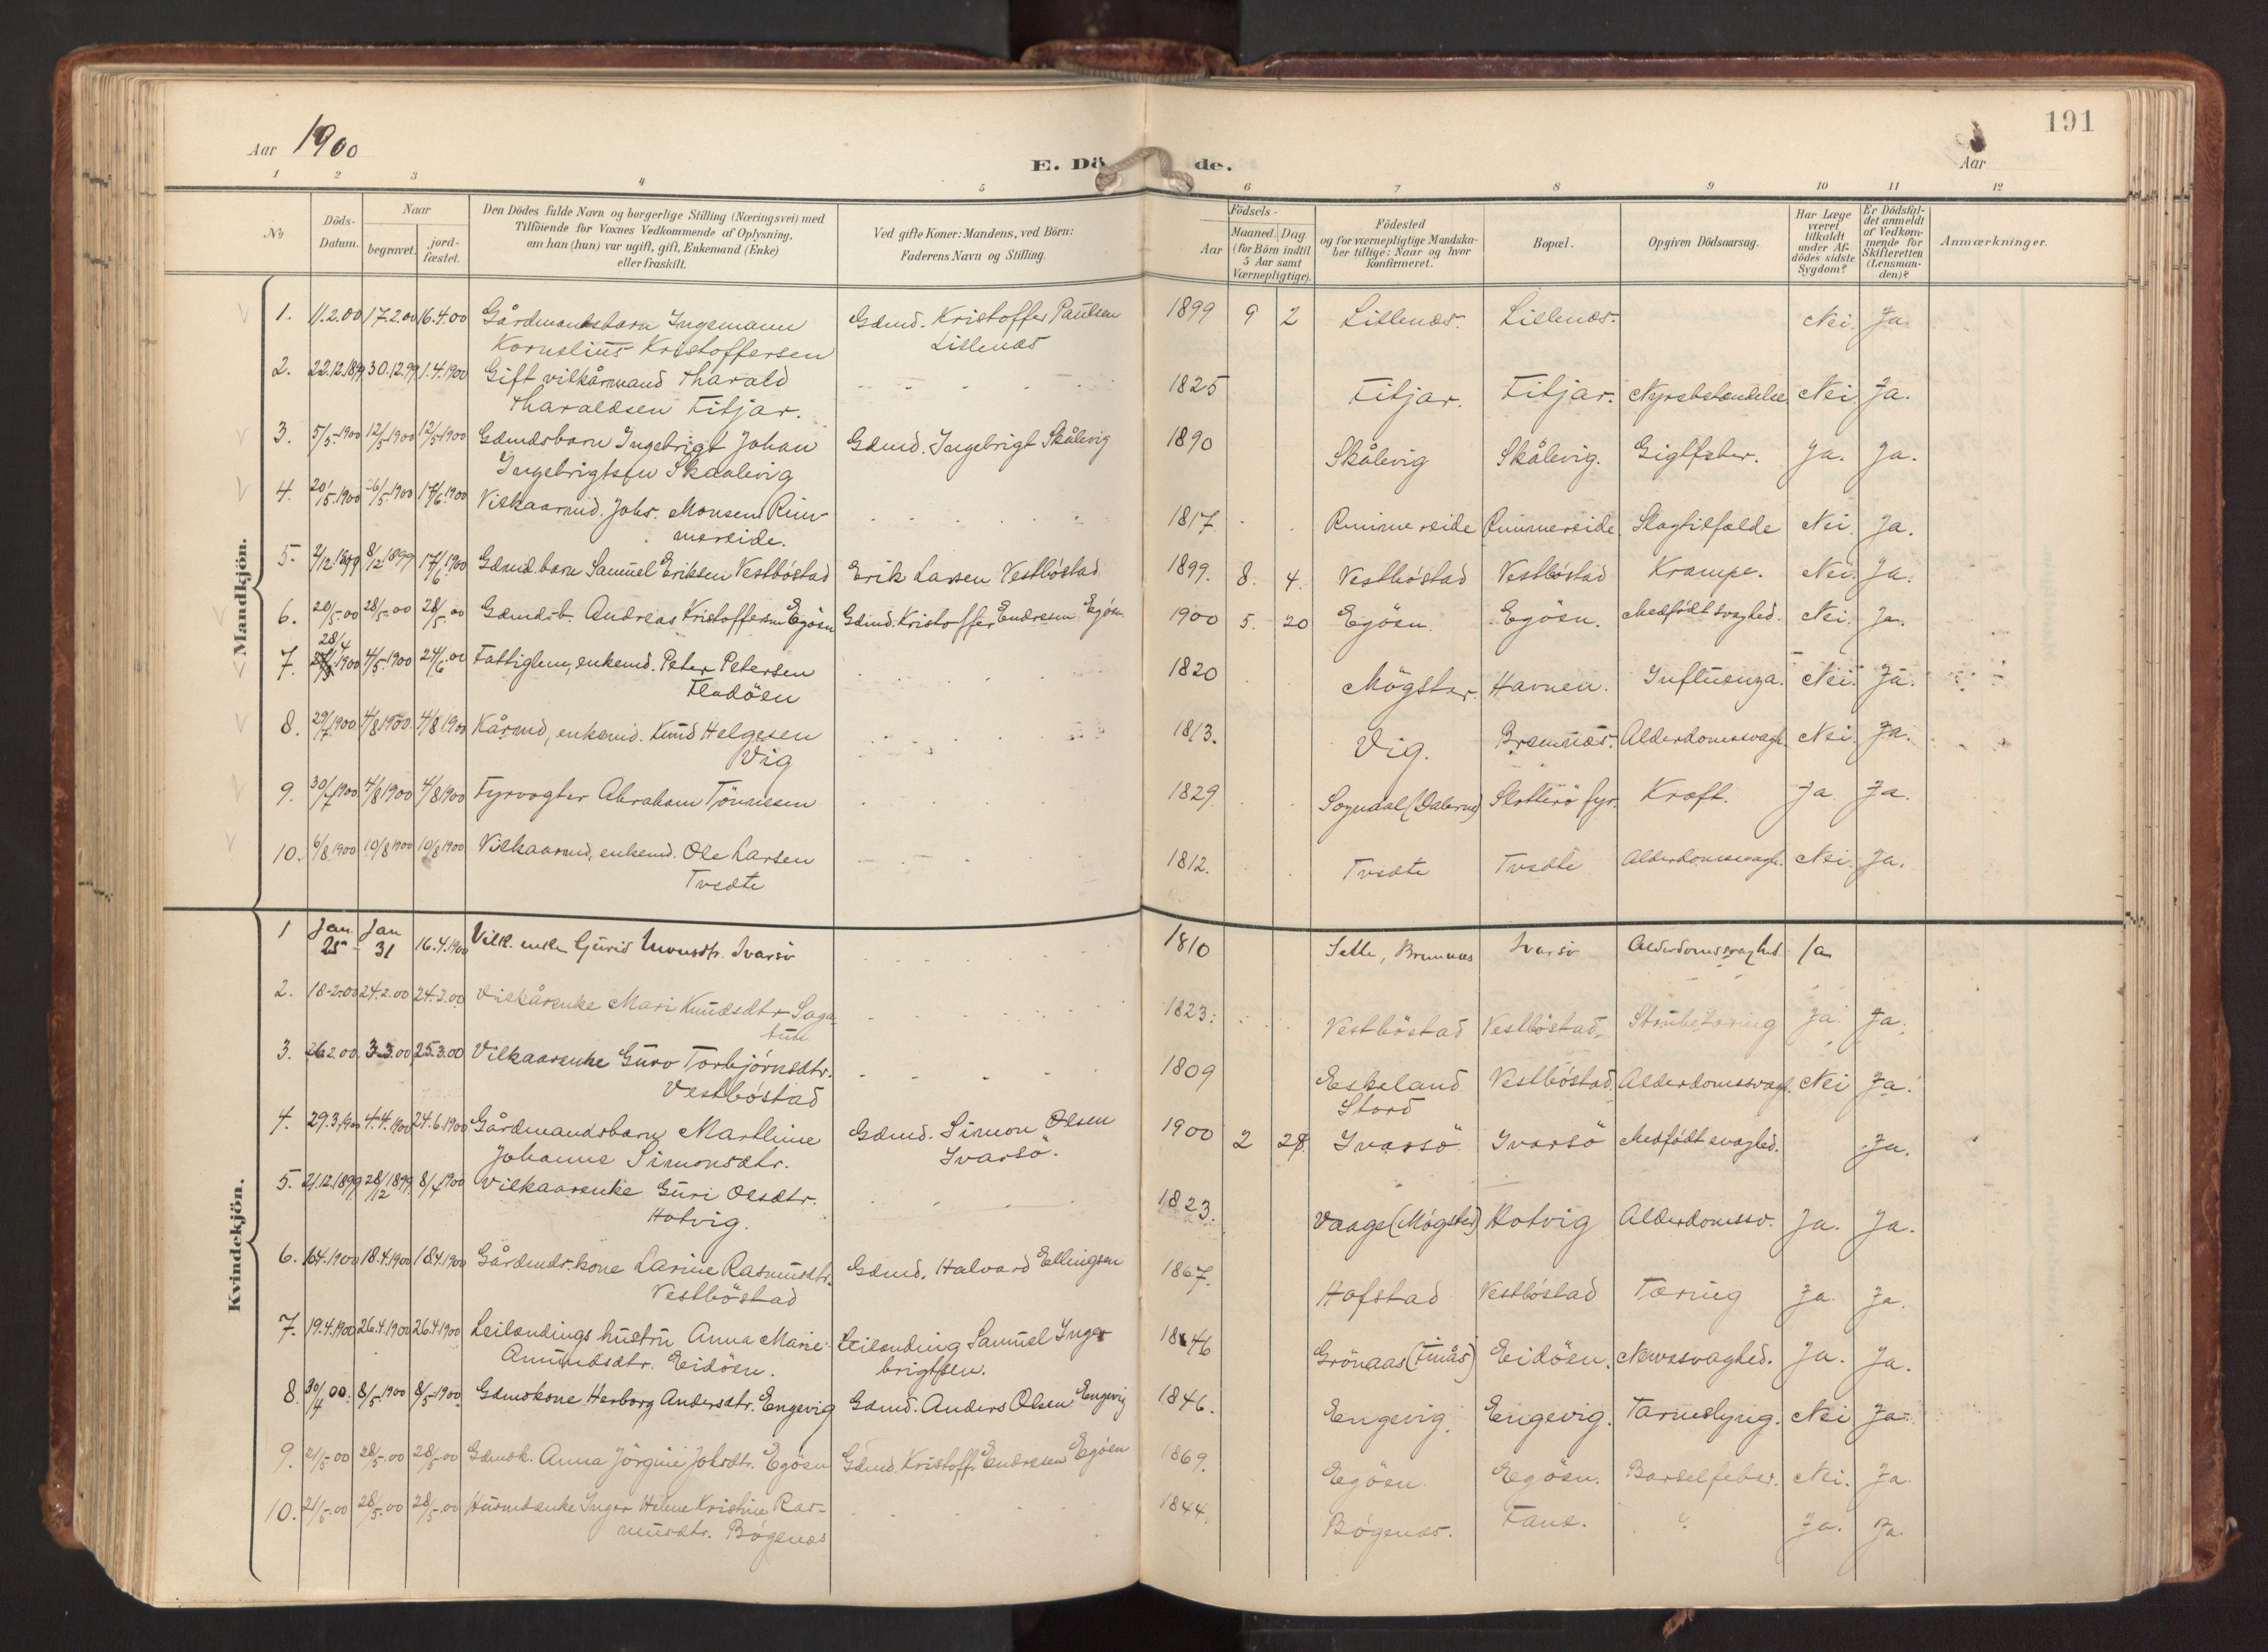 191
Aar 1900
Aar
E. Dö de.
1 2 3 4 5 6 7 8 9 10 11 12
No
Döds-Datum.
Naar
begravet.
jord-fæstet.
Den Dödes fulde Navn og borgerlige Stilling (Næringsvei) med
Tilföiende for Voxnes Vedkommende af Oplysning,
om han (hun) var ugift, gift, Enkemand (Enke)
eller fraskilt.
Ved gifte Koner: Mandens, ved Börn:
Faderens Navn og Stilling.
Födsels-
Aar
Maaned. Dag.
(for Börn indtil
5 Aar samt
Værnepligtige).
Födested
og for værnepligtige Mandska-
ber tillige: Naar og hvor
konfirmeret.
Bopæl.
Opgiven Dödsaarsag.
Har Læge
været
tilkaldt
under Af-
dödes sidste
Sygdom?
Er Dödsfal-
det anmeldt
af Vedkom-
mende for
Skifteretten
(Lensman-
den)?
Anmærkninger.
Mandkjön.
1. 11.2.00 17.2.00 16.4.00 Gårdmandsbarn Ingemann Gdmd. Kristoffer Paulsen 1899 9 2 Lillenæs. Lillenæs. Nei. Ja.
Kornelius Kristoffersen Lillenæs
2. 22.12.1899 30.12.99 1.4.1900 Gift vilkårmand Harald 1825 Fitjar. Fitjar. Nyrebetændelse. Nei. Ja.
Haraldsen Fitjar.
3. 5/5-1900 12/5-1900 12/5-1900 Gdmdsbarn Ingebrigt Johan Gdmd. Ingebrigt Skålevig 1890 Skålevig Skålevig. Gigtfeber. Ja. Ja.
Ingebrigtsen Skaalevig
4. 20/5-1900 26/5-1900 17/6.1900 Vilkaarmd. Johs. Monsen Rim- 1817. Rimmereide Rimmereide Slagtilfælde Nei Ja.
mereide.
5. 2/12 1899 8/12 1899 17/6 1900 Gdmd.barn Samuel Eriksen Vestböstad Erik Larsen Vestböstad 1899. 8. 4. Vestböstad Vestböstad Krampe. Nei. Ja.
6. 20/5-00 28/5-00 28/5-00 Gdmds-b. Andreas Kristoffersen Egösn Gdmd. Kristoffer Endresen Egösn 1900 5. 20 Egösn Egösn. Medfödt svaghed. Nei. Ja.
7. 28/4 1900 4/5-1900 24/6-00 Fattiglem, enkemd. Peter Petersen 1820 Mögster. Havnen. Influenza. Nei. Ja.
Fladöen
8. 29/7 1900 4/8 1900. 4/8 1900 Kårmd, enkemd. Knud Helgesen 1813. Vig. Bremnæs. Alderdomssvagh. Nei. Ja.
Vig
9. 30/7 1900 4/8 1900 4/8 1900 Fyrvogter Abraham Tönnesen 1829 Sogndal (Dalerne) Slotterö fyr. Kræft. Ja. Ja.
10. 6/8 1900 10/8 1900 10/8 1900 Vilkaarmd, enkemd. Ole Larsen 1812. Tvedte Tvedte Alderdomssvagh. Nei. Ja.
Tvedte
Kvindekjön.
1 Jan 25 Jan 31 16.4.1900 Vilk. enke Guris Monsdtr. Ivarsö 1810 Sette, Bremnæs Ivarsö Alderdomssvaghed Ja
2. 18-2.00 24.2.00 24.2.00 Vilkårenke Mari Knudsdtr Saga- 1823. Vestböstad Vestböstad. Strubetæring Ja. Ja.
tun
3. 26.2.00 3.3.00 25.3.00 Vilkaarenke Guro Torbjörnsdtr. 1809 Eskeland Vestböstad. Alderdomssvagh. Nei Ja.
Vestböstad Stord
4. 29.3.1900 4.4.1900 24.6.1900 Gårdmandsbarn Marthine Gdmd. Simon Olsen 1900 2 28. Ivarsö Ivarsö Medfödt svaghed. Ja.
Johanne Simonsdtr. Ivarsö.
5. 21.12.1899 28/12 1899 8/4 1900 Vilkaarenke Guri Olsdtr. 1823. Vaage (Mögster) Hotvig Alderdomssv. Ja. Ja.
Hotvig.
6. 10.4.1900 18.4.1900 18.4.1900 Gårdmds.kone Larine Rasmusdtr. Gdmd. Halvard Ellingsen 1867. Hofstad Vestböstad Tæring Ja. Ja.
Vestböstad
7. 19.4.1900 26.4.1900 26.4.1900 Leilændings hustru Anna Marie Leilending Samuel Inge- 1846 Grönaas (Finås) Eidösn. Nervesvaghed. Ja. Ja.
Amundsdtr. Eidösn. brigtsen.
8. 30/4 00. 8/5-1900 8/5-1900 Gdmdkone Herborg Andersdtr. Engevig Gdmd. Anders Olsen Engevig 1846. Engevig. Engevig. Tarmslyng. Nei Ja.
9. 21/5-00 28/5-00 28/5-00 Gdmdk. Anna Jörgine Johsdtr. Egösn Gdmd. Kristoff. Endresen Egösn 1869. Egösn Egösn. Barselfeber. Nei. Ja.
10. 21/5-00 28/5-00 28/5-00 Husmdsenke Inger Helene Kristine Ras- 1844. Bögenæs. Fane. Ja. Ja.
musdtr. Bögenæs